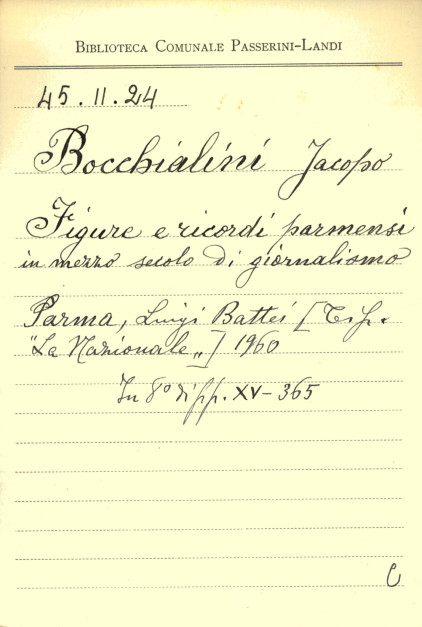 BIBLIOTECA COMUNALE PASSERINI-LANDI
45.II.24
Bocchialini Jacopo
Figure e ricordi parmensi
in mezzo secolo di giornalismo
Parma, Luigi Battei [Tip.
"La Nazionale„] 1960
In 8º di pp. XV-365
C